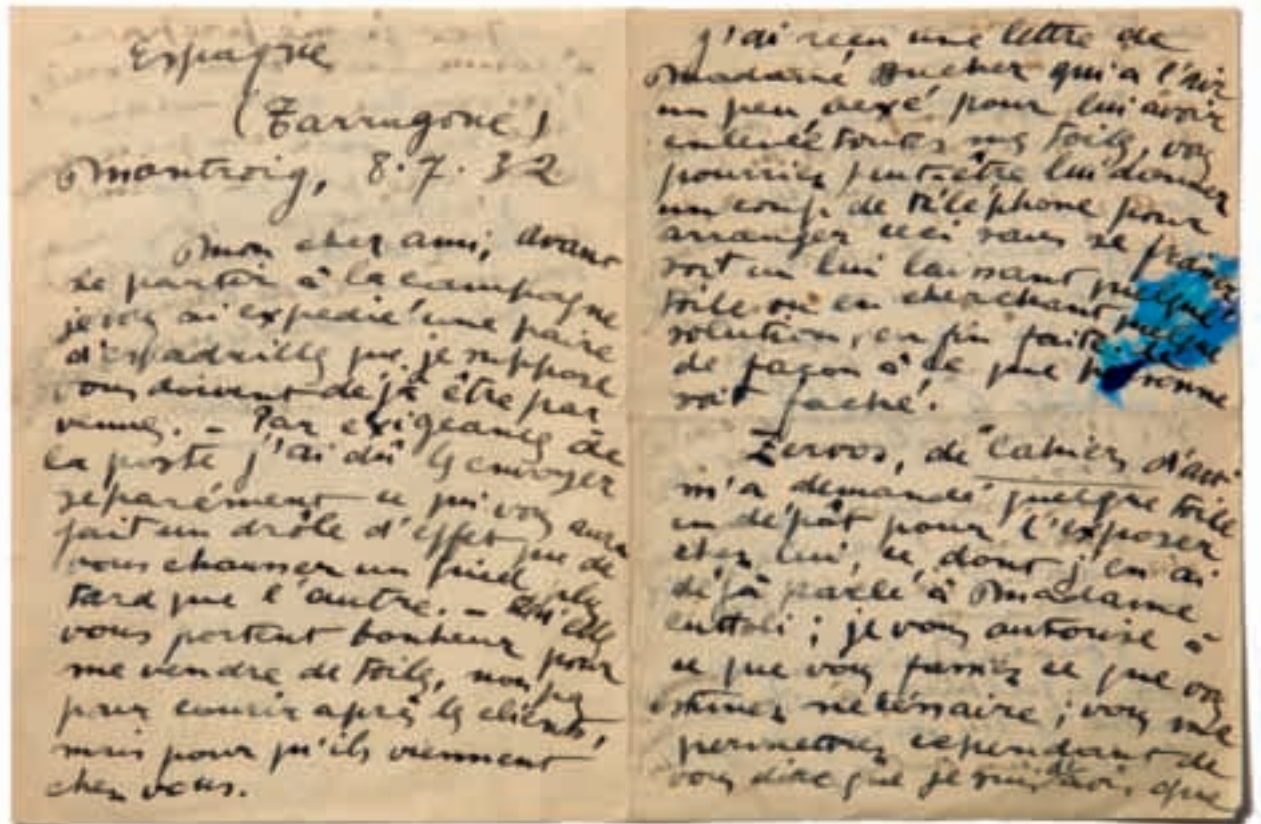 Espagne
(Tarragone)
Montroig, 8.7.32
Mon cher ami, avant
de partir à la campagne
je vous ai expédié une paire
d'espadrilles que je suppose
vous doivent déjà être par
venues. – Par exigeances de
la poste j'ai dû les envoyer
separément ce qui vous aura
fait un drôle d'effet que de
vous chausser un pied plus
tard que l'autre. – Qu'elles
vous portent bonheur pour
me vendre de toiles, non pas
pour courir après les clients,
mais pour qu'ils viennent
chez vous.
J'ai reçu une lettre de
Madame Bucher qui a l'air
un peu vexé pour lui avoir
enlevé toutes mes toiles, vous
pourriez peut-être lui donner
un coup de téléphone pour
arranger ceci sans se
soit en lui laissant quelque
toile ou en cherchant quelque
solution, enfin faites le
de façon à ce que personne
soit faché.
Zervos, de "Cahiers d'art"
m'a demandé quelque toile
en dépôt pour l'exposer
chez lui, ce dont j'en ai
déjà parlé à Madame
Cuttoli ; je vous autorise à
ce que vous fassiez ce que vous
estimez nécéssaire ; vous me
permettrez cependant de
vous dire que je suis d'avis que